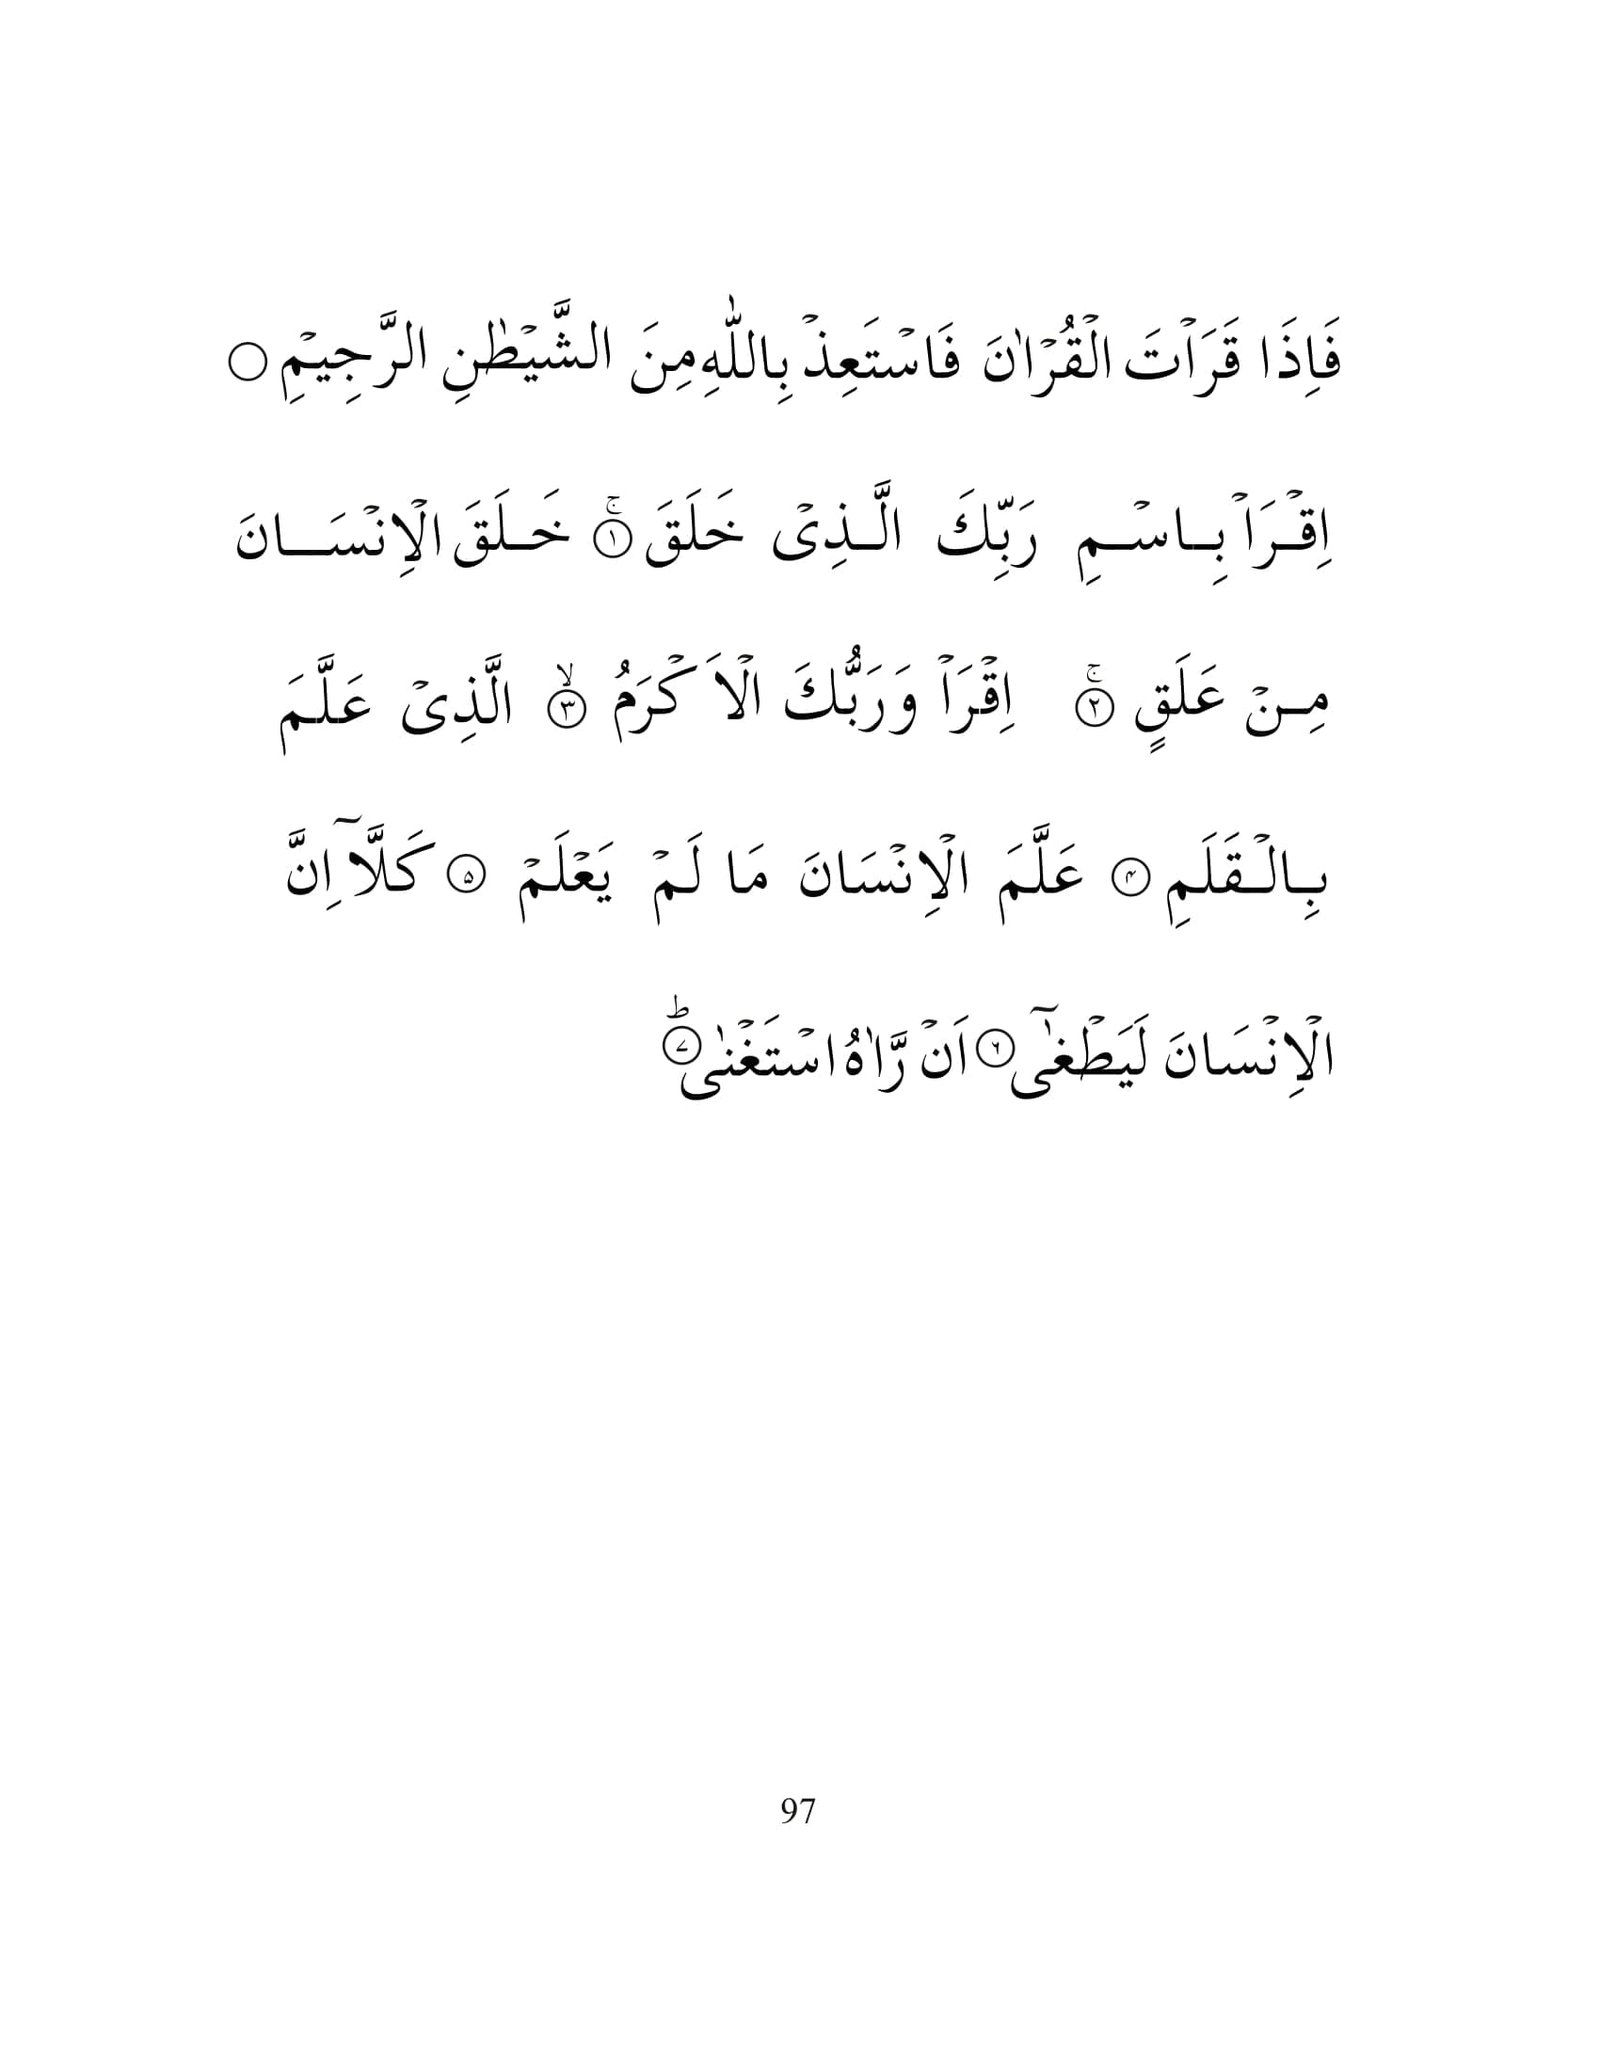 فَاِذَا قَرَاۡتَ الۡقُرۡاٰنَ فَاسۡتَعِذۡ بِاللّٰهِ مِنَ الشَّيۡطٰنِ الرَّجِيۡمِ ۝
اِقۡرَاۡ بِاسۡمِ رَبِّكَ الَّذِىۡ خَلَقَ‌ۚ‏ ﴿۱﴾ خَلَقَ الۡاِنۡسَانَ
مِنۡ عَلَقٍ‌ۚ‏ ﴿۲﴾ اِقۡرَاۡ وَرَبُّكَ الۡاَكۡرَمُۙ‏ ﴿۳﴾ الَّذِىۡ عَلَّمَ
بِالۡقَلَمِ ﴿۴﴾ عَلَّمَ الۡاِنۡسَانَ مَا لَمۡ يَعۡلَمۡ ﴿۵﴾ كَلَّاۤ اِنَّ
الۡاِنۡسَانَ لَيَطۡغٰٓى ﴿۶﴾ اَنۡ رَّاٰهُ اسۡتَغۡنٰىؕ‏ ﴿۷﴾
97